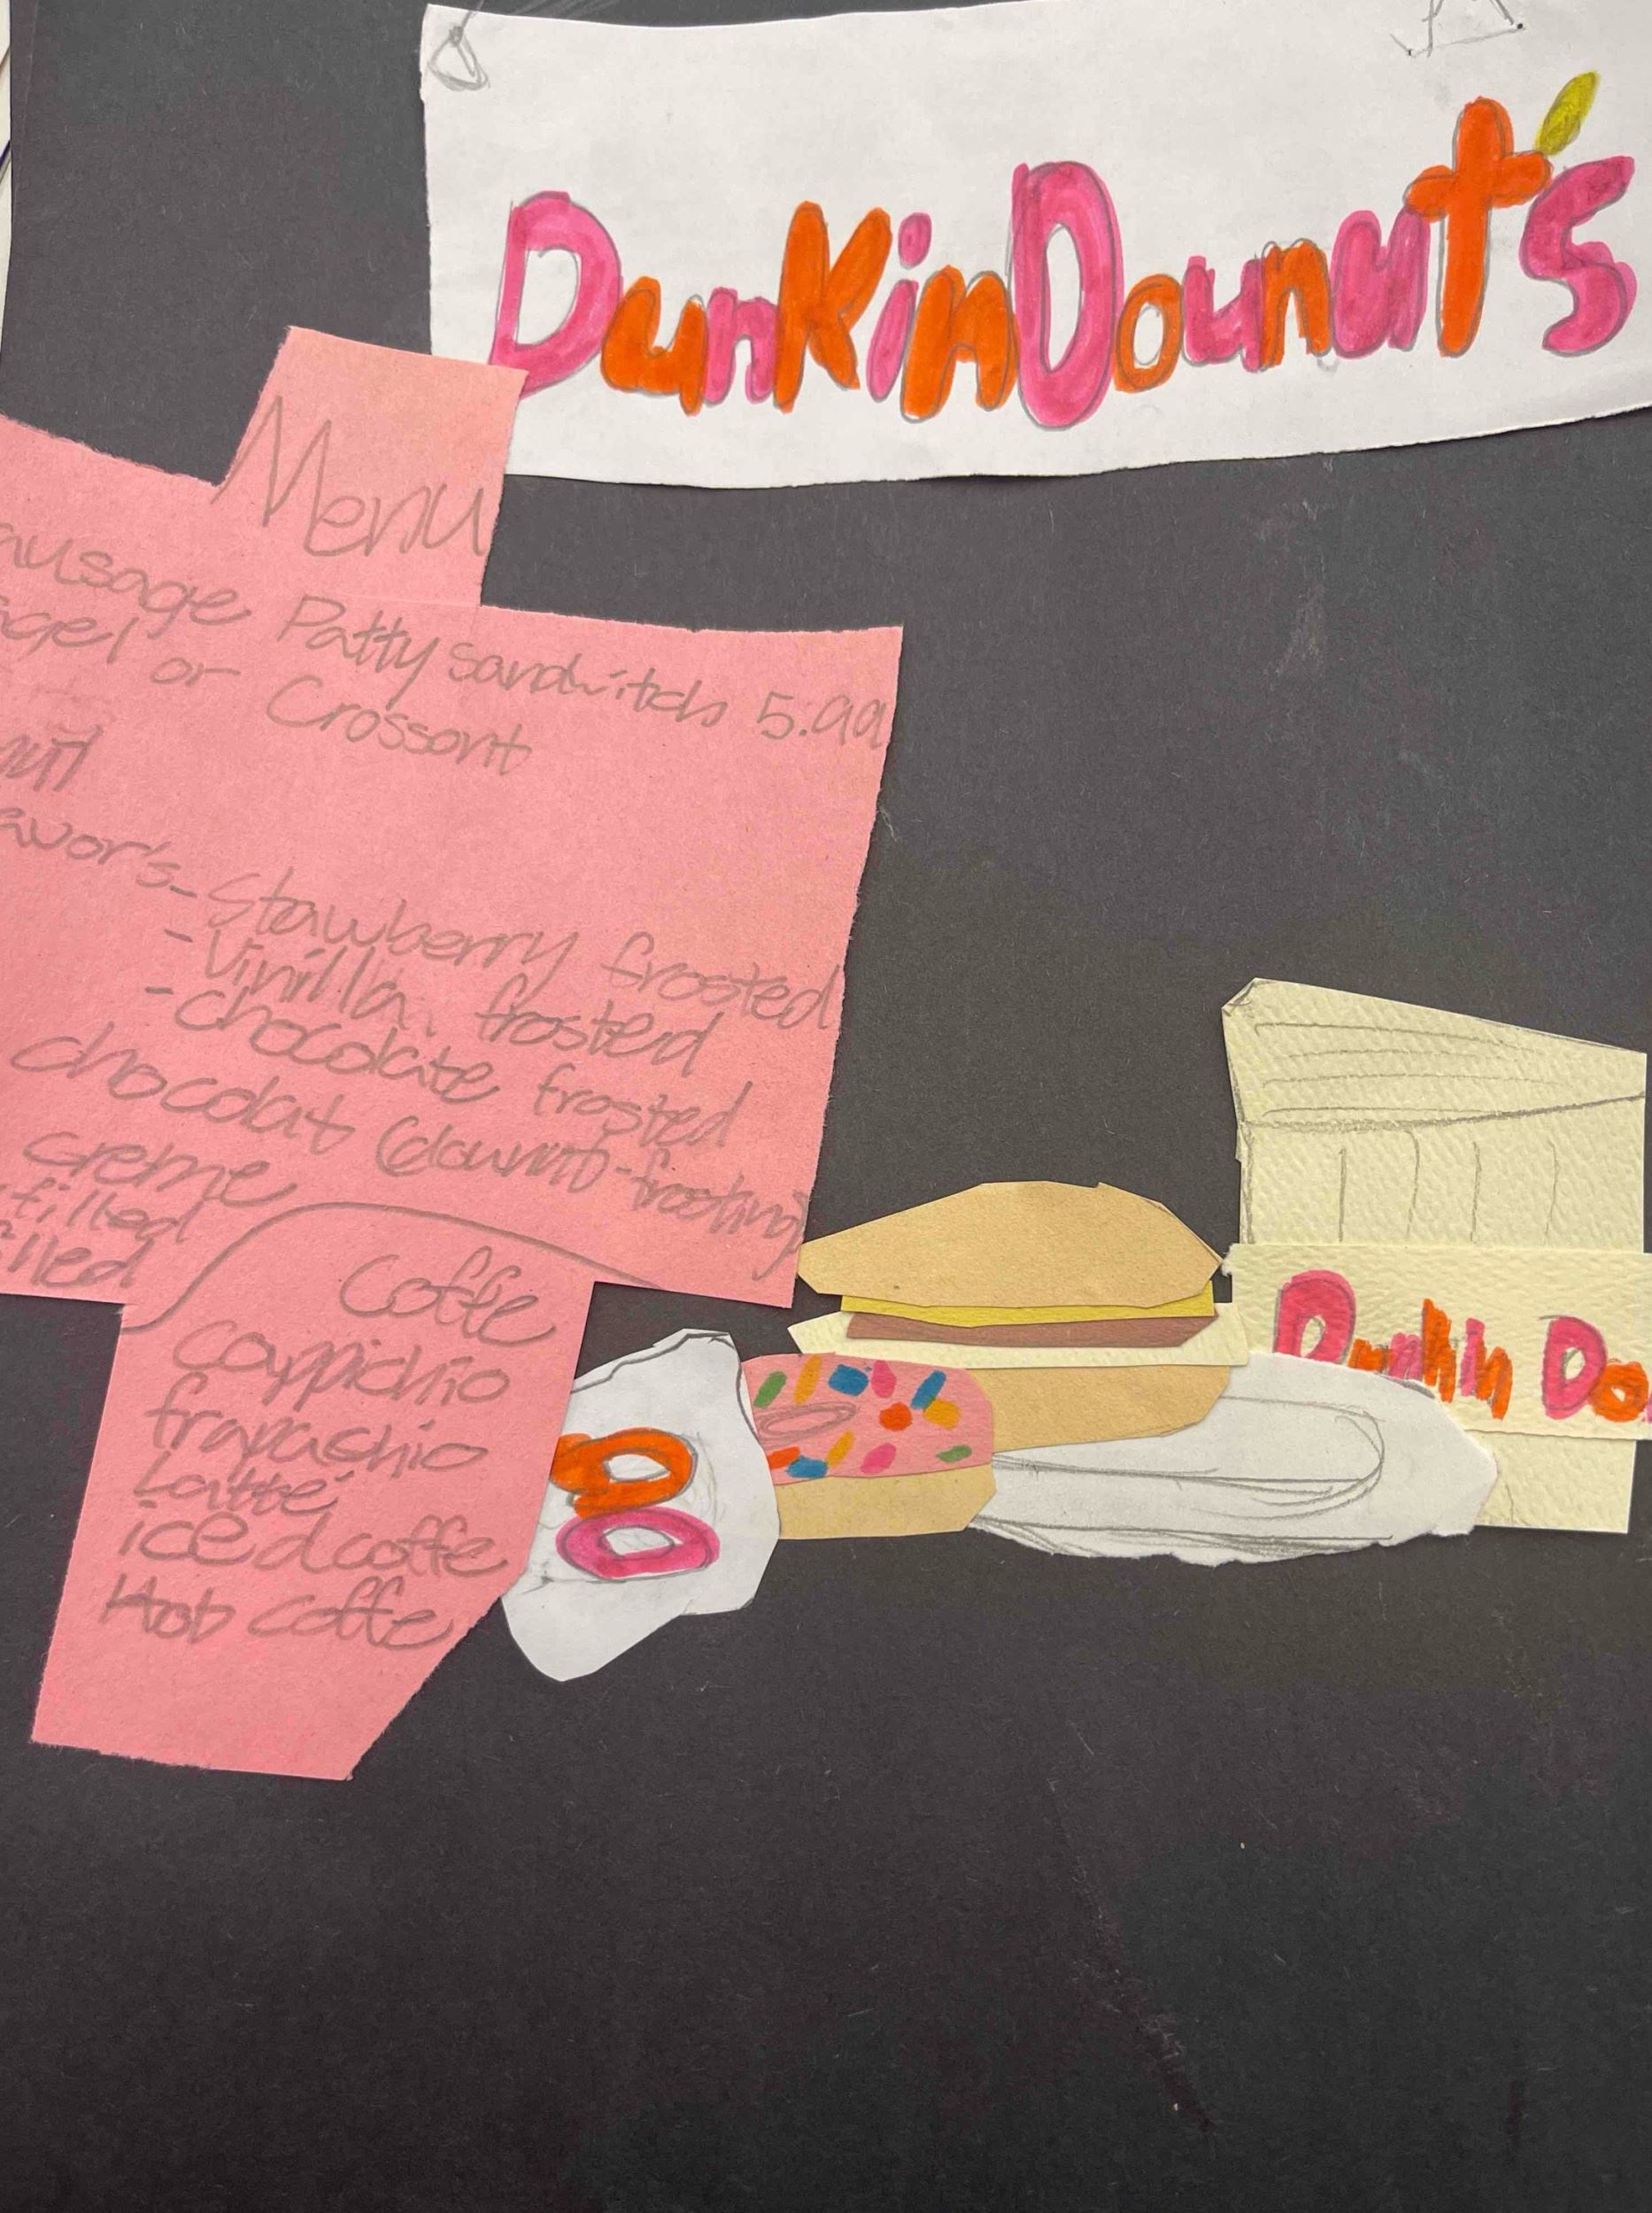 DunkinDounut's
Menu
ausage Patty sandwitch 5.99
agel or Crossont
avor's - Stawberry frosted
- Vinilla frosted
- chocolate frosted
chocolat (dounut-frosting
creme
filled
illed
Coffe
Cappichio
frapachio
Latté
iced coffe
Hot coffe
DD
Dunkin Do